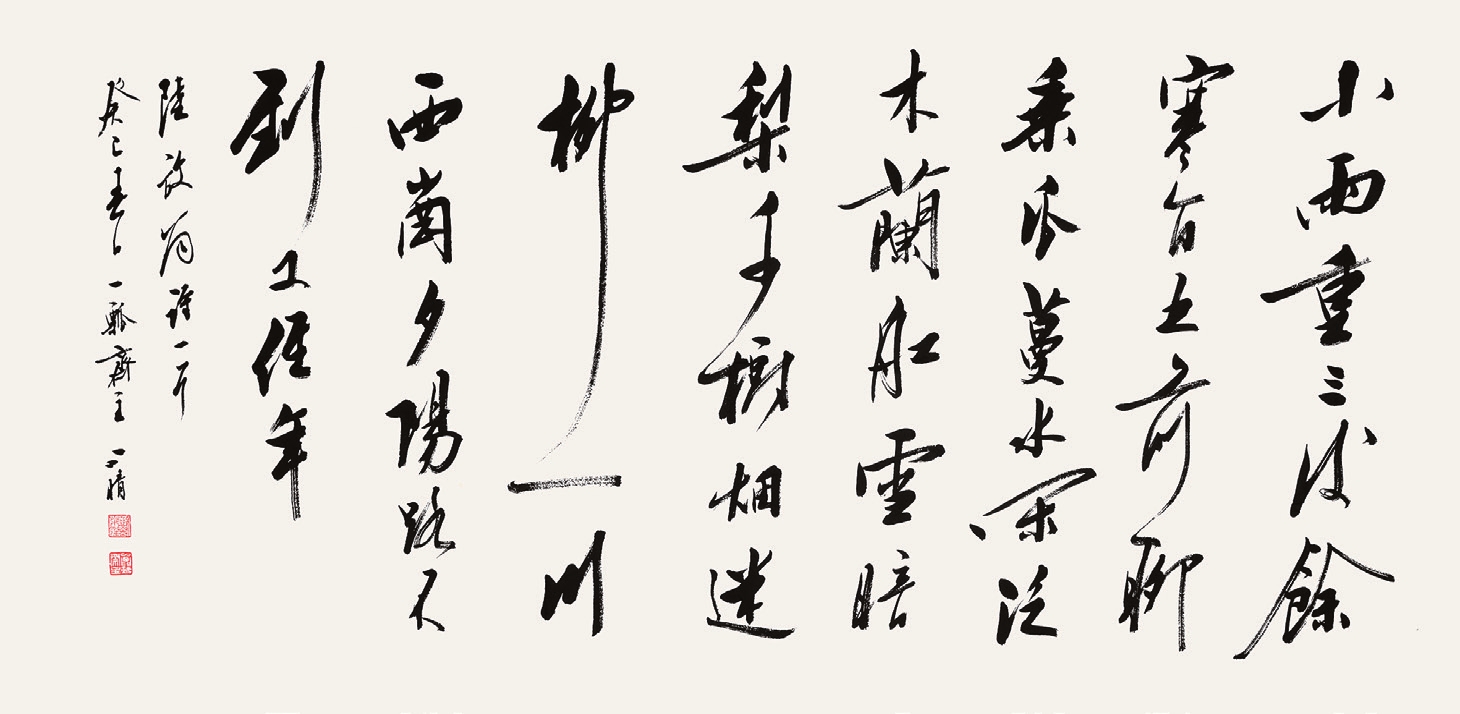 小雨重三後餘
寒百五前聊
乘瓜蔓水閑泛
木蘭舡雪暗
梨千樹烟迷
柳一川
西崗夕陽路不
到又經年
陸放翁詩一首
癸巳春日一瓢齋主